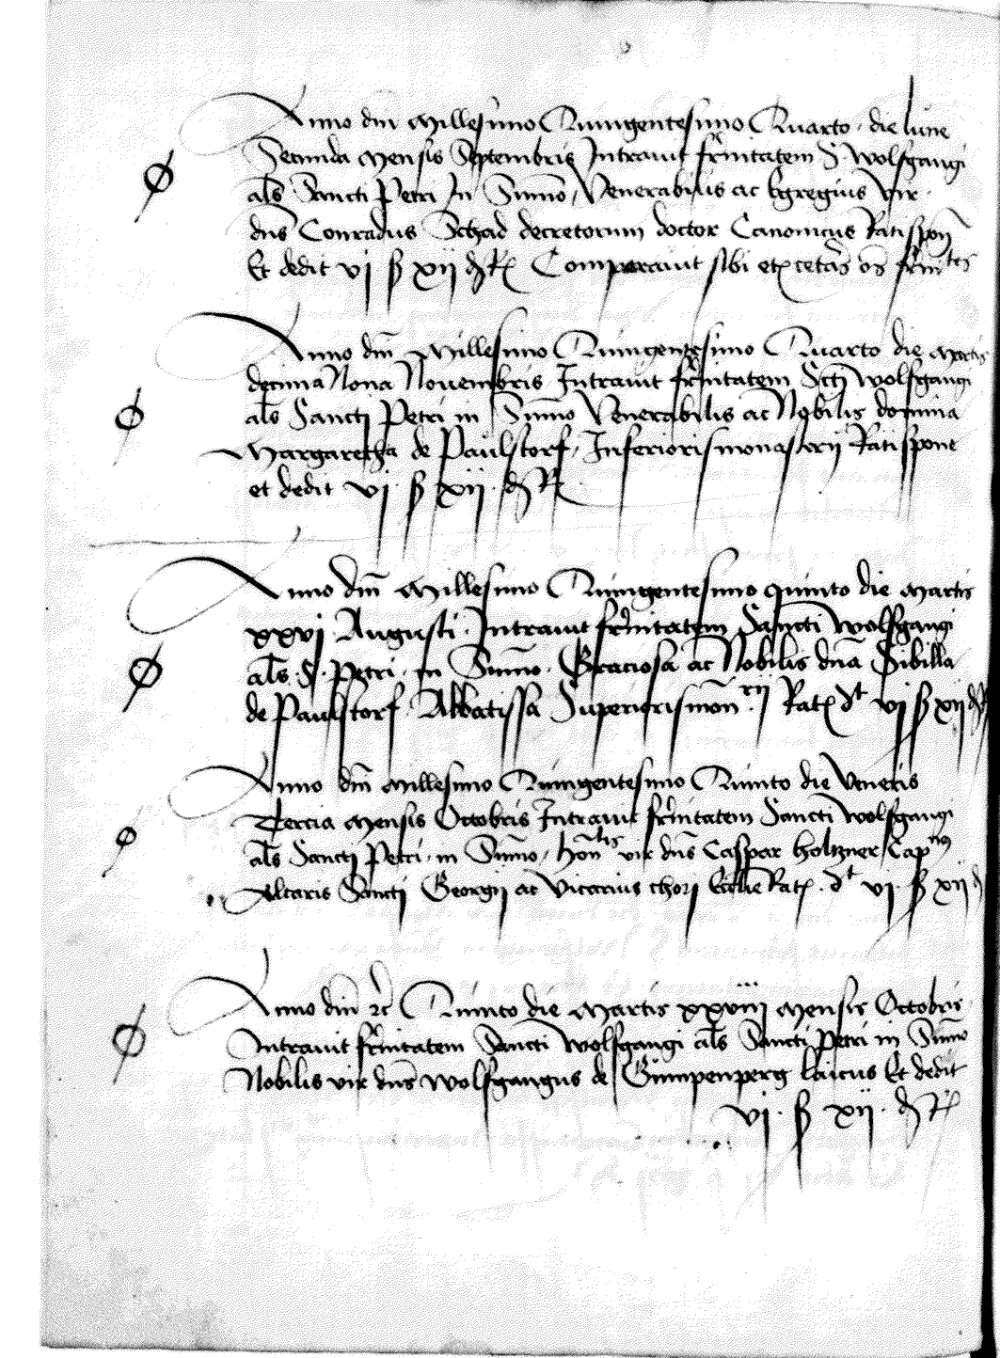 Anno dni Millesimo Quingentesimo Quarto die lune
Secunda Mensis Septembris Intravit frnitatem S. Wolfgangi
als Sancti Petri In Summo, Venerabilis ac Egregius vir
dns Conradus Schad decretorum doctor Canonicus Ratispon
Et dedit vj ß xij d R Comparavit sibi et ceteris
Anno dni Millesimo Quingentesimo Quarto die Martis
decima Nona Novembris Intravit frnitatem Scti Wolfgangi
als Sancti Petri in Summo Venerabilis ac Nobilis domina
Margaretha de Paulstorf, Inferioris monasterij Ratispone
et dedit vj ß xij d R
Anno dni Millesimo Quingentesimo quinto die Martis
xxvj Augusti Intravit frnitatem Sancti Wolfgangi
als S. Petri in Summo Graciosa ac Nobilis dna Sibilla
de Paulstorf Abbatissa Superioris mon rij Rat dt vj ß xij d
Anno dni Millesimo Quingentesimo Quinto die Veneris
Tercia Mensis Octobris Intravit frnitatem Sancti Wolfgangi
als Sancti Petri in Summo, hon vir dns Caspar holtzner Cap nus
Altaris Sancti Georgij ac Vicarius chori Ecclie Rat. dt vj ß xij d
Anno dni 2c Quinto die Martis xxviij Mensis Octobris
Intravit frnitatem Sancti Wolfgangi als Sancti Petri in Summo
Nobilis vir dns Wolfgangus de Gumpenperg laicus Et dedit
vj ß xij d R